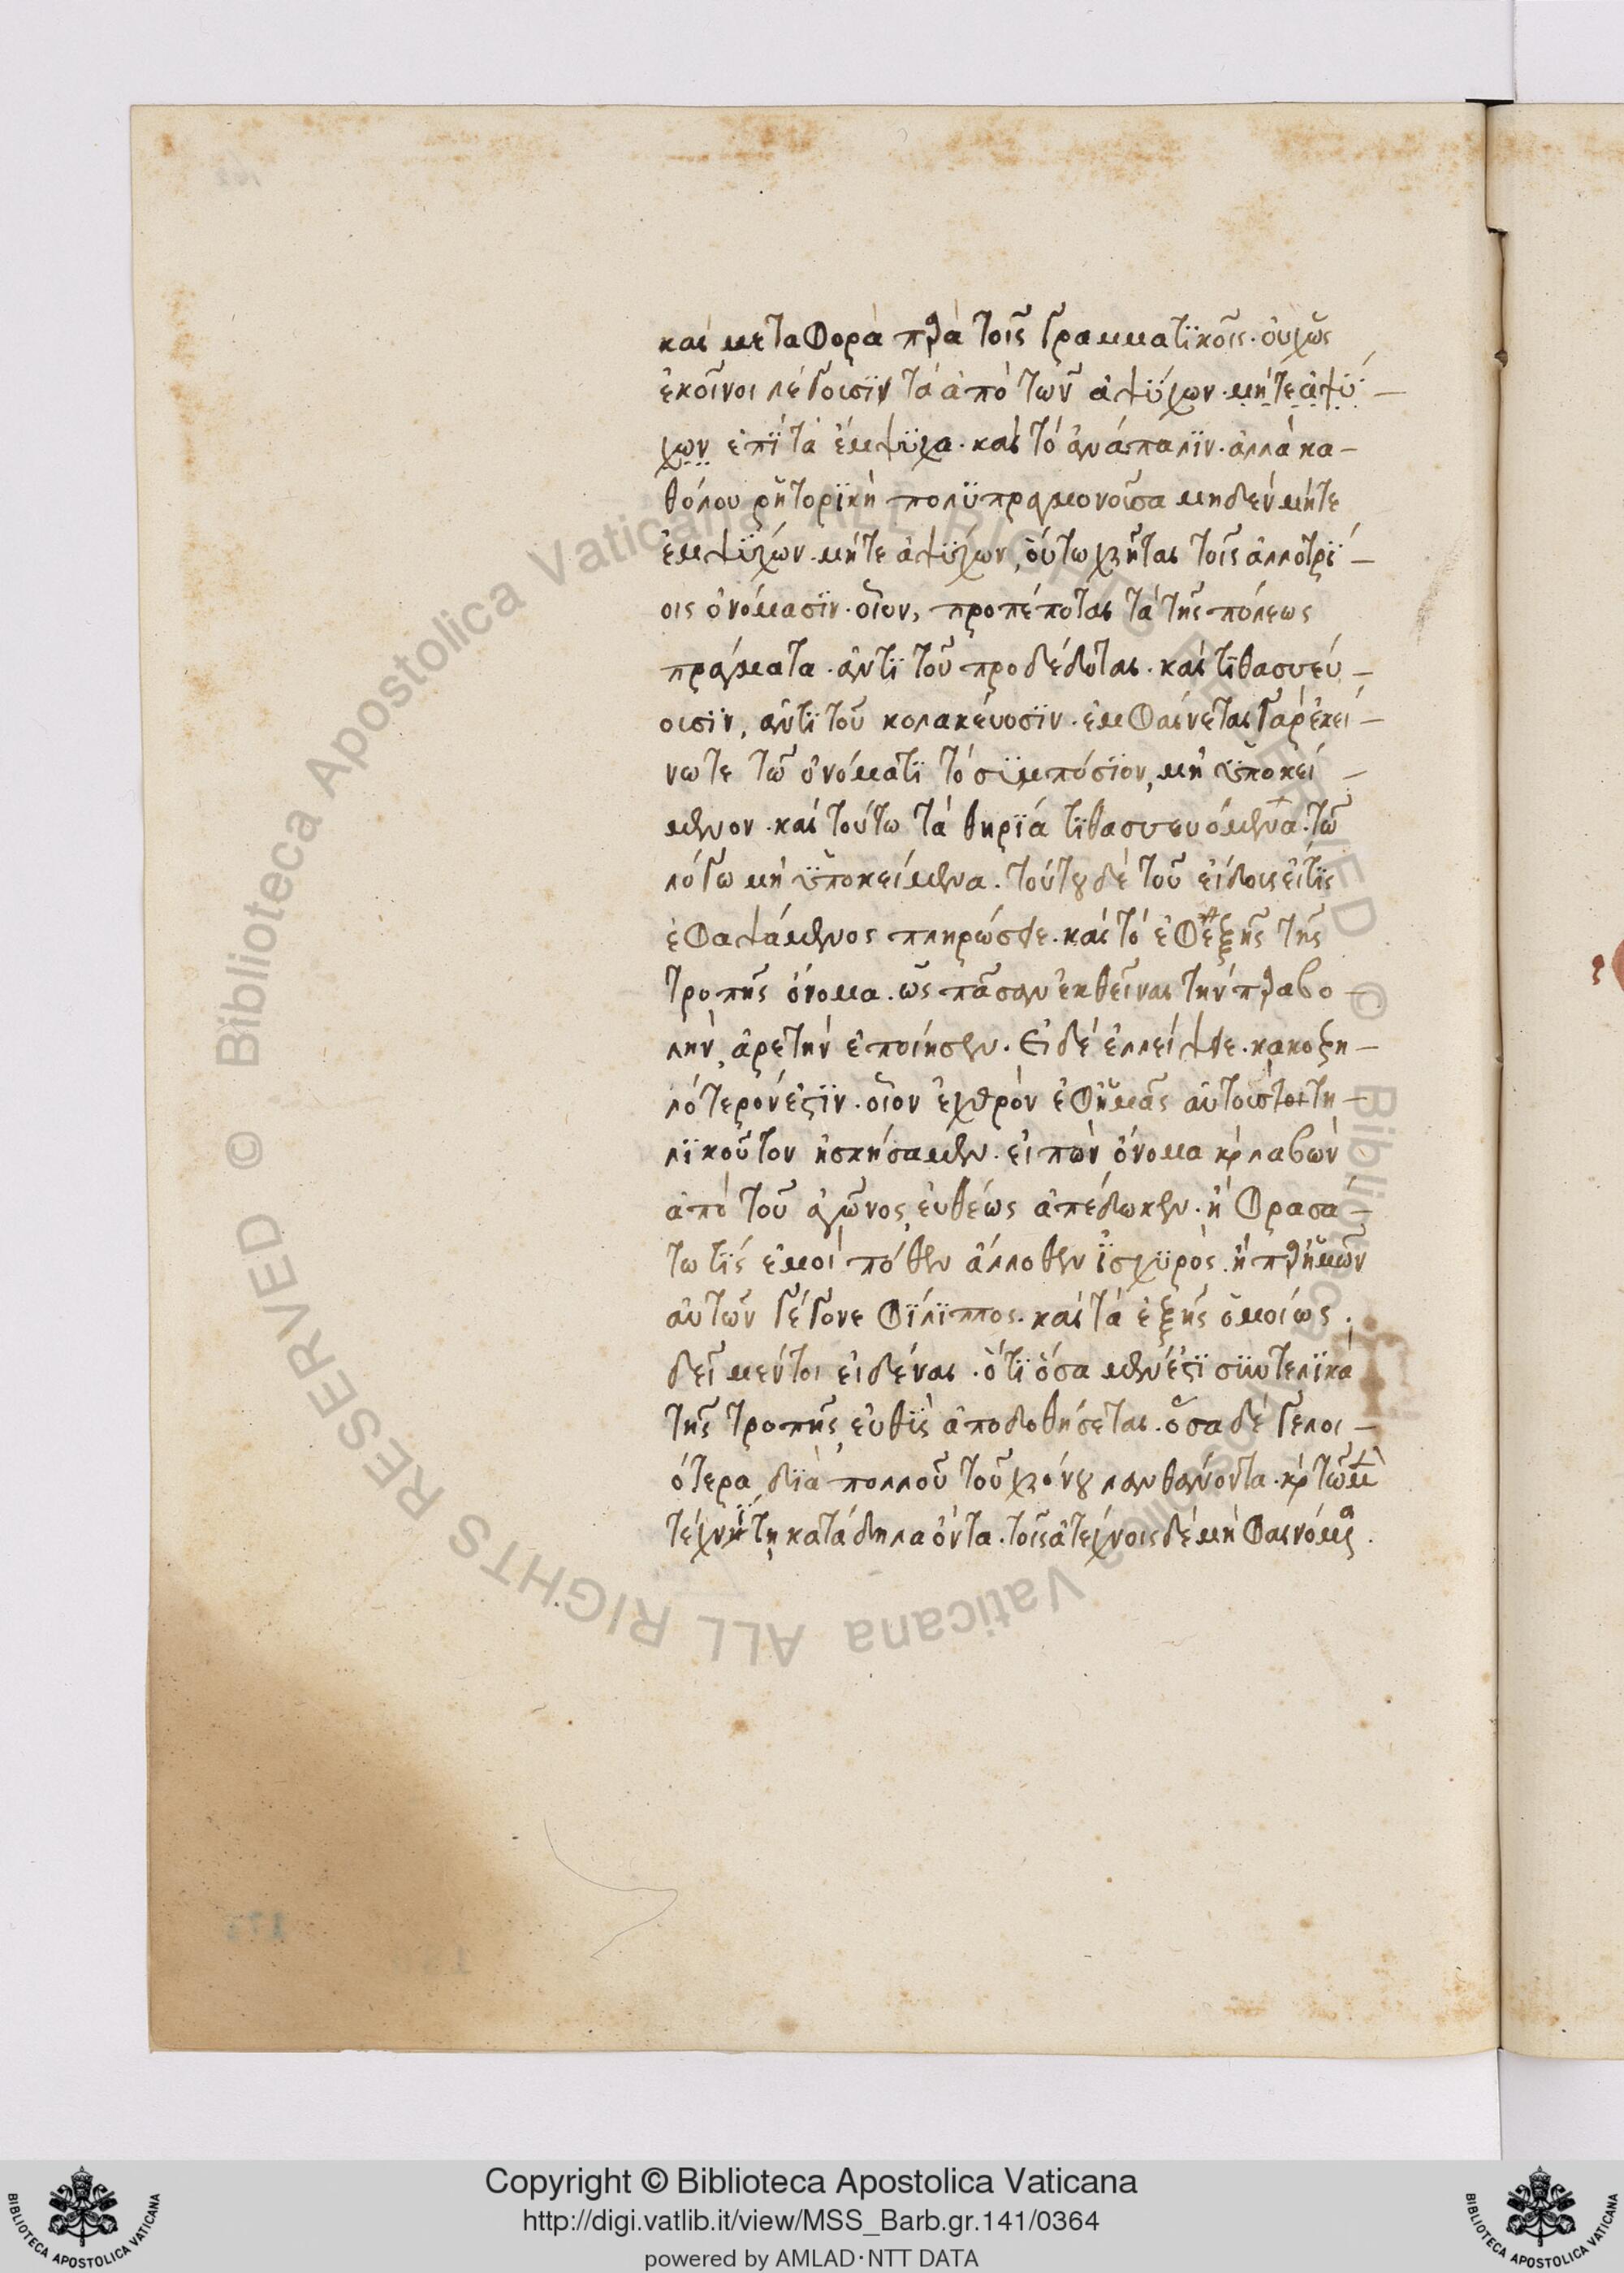 και μεταφορὰ παρὰ τοῖς γραμματϊκοῖς. οὐχ ὡς
ἐκεῖνοι λέγουσϊν τὰ ἀπὸ τῶν ἀψύχων. μήτε ἀψύ-
χων ἐπϊ τὰ ἔμψϋχα. καὶ τὸ ἀνάπαλϊν. ἀλλὰ κα-
θόλου ρητορϊκὴ πολϋπραγμονοῦσα μηδὲν μήτε
ἐμψϋχων. μήτε ἀψϋχων, οὕτω χρῆται τοῖς ἀλλοτρϊ-
οις ὀνόμασϊν. οἷον, προπέποται τὰ τῆς πόλεως
πράγματα. ἀντϊ τοῦ προδέδοται. καὶ τϊθασυεύ-
ουσϊν, ἀντϊ τοῦ κολακεύοσϊν. ἐμφαίνεται γὰρ ἐκεί-
νω τε τῶ ὀνόματϊ τὸ σϋμπόσϊον, μὴ ϋποκεί-
μενον. καὶ τούτω τὰ θηρϊά τϊθασυευόμενα. τῶ
λόγω μὴ ϋποκείμενα. τούτου δὲ τοῦ εἴδους εἴ τϊς
ἐφαψάμενος πληρώσει. καὶ τὸ ἐφεξῆς τῆς
τροπῆς ὄνομα. ὡς πᾶσαν ἐκθεῖναι τὴν παραβο-
λὴν, ἀρετὴν ἐποίησεν. Εἰ δὲ ἐλλείψει. κακοζη-
λότερόν ἐστϊν. οἷον ἐχθρὸν ἐφ ἡμᾶς αὐτοὺς τη-
λϊκοῦτον ἠσκήσαμεν. εἰπὼν ὄνομα καὶ λαβὼν
ἀπὸ τοῦ ἀγῶνος, εὐθέως ἀπέδωκεν. ἢ φρασά-
τω τϊς ἐμοὶ πόθεν ἄλλοθεν ϊσχϋρὸς. ἢ παρ ἡμῶν
αὐτῶν γέγονε φϊλϊππος. καὶ τὰ ἑξῆς ὁμοίως.
δεῖ μέντοι εἰδέναι. ὅτϊ ὅσα μέν ἐστϊ σϋντελϊκὰ
τῆς τροπῆς, εὐθϊς ἀποδοθήσεται. ὅσα δὲ γελοι-
ότερα, δϊὰ πολλοῦ τοῦ χρόνου λανθάνοντα. καὶ τῶ μὲν
τεχνϊτη κατάδηλα ὄντα. τοῖς ἀτέχνοις δὲ μὴ φαινόμενα.
Copyright © Biblioteca Apostolica Vaticana
http://digi.vatlib.it/view/MSS_Barb.gr.141/0364
powered by AMLAD·NTT DATA
BIBLIOTECA APOSTOLICA VATICANA
BIBLIOTECA APOSTOLICA VATICANA
© Biblioteca Apostolica Vaticana ALL RIGHTS RESERVED © Biblioteca Apostolica Vaticana ALL RIGHTS RESERVED